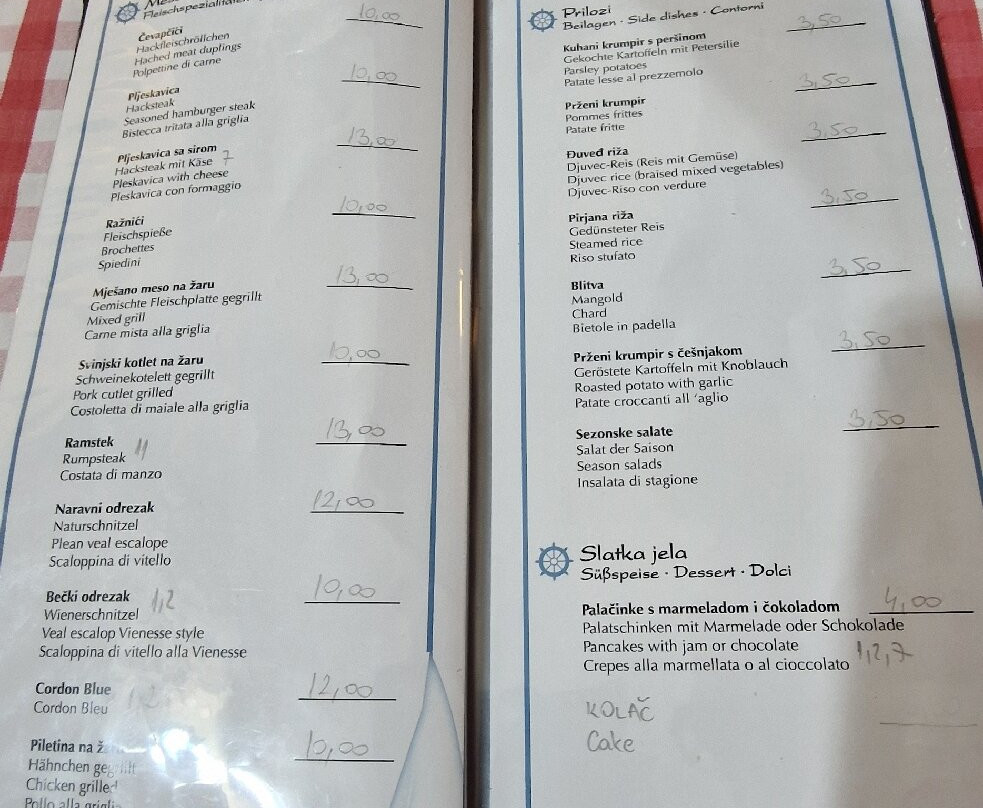 Fleischspezialitäten
10,00
Čevapčići
Hackfleischröllchen
Hached meat duplings
Polpettine di carne
10,00
Pljeskavica
Hacksteak
Seasoned hamburger steak
Bistecca tritata alla griglia
13,00
Pljeskavica sa sirom
Hacksteak mit Käse 7
Pleskavica with cheese
Pleskavica con formaggio
10,00
Ražnići
Fleischspieße
Brochettes
Spiedini
13,00
Mješano meso na žaru
Gemischte Fleischplatte gegrillt
Mixed grill
Carne mista alla griglia
10,00
Svinjski kotlet na žaru
Schweinekotelett gegrillt
Pork cutlet grilled
Costoletta di maiale alla griglia
13,00
Ramstek
Rumpsteak 11
Costata di manzo
12,00
Naravni odrezak
Naturschnitzel
Plean veal escalope
Scaloppina di vitello
10,00
Bečki odrezak 1,2
Wienerschnitzel
Veal escalop Vienesse style
Scaloppina di vitello alla Vienesse
12,00
Cordon Blue
Cordon Bleu 1,2
10,00
Piletina na ž
Hähnchen gegrillt
Chicken grilled
Pollo alla griglia
Prilozi
Beilagen · Side dishes · Contorni
3,50
Kuhani krumpir s peršinom
Gekochte Kartoffeln mit Petersilie
Parsley potatoes
Patate lesse al prezzemolo
3,50
Prženi krumpir
Pommes frittes
Patate fritte
3,50
Đuveđ riža
Djuvec-Reis (Reis mit Gemüse)
Djuvec rice (braised mixed vegetables)
Djuvec-Riso con verdure
3,50
Pirjana riža
Gedünsteter Reis
Steamed rice
Riso stufato
3,50
Blitva
Mangold
Chard
Bietole in padella
3,50
Prženi krumpir s češnjakom
Geröstete Kartoffeln mit Knoblauch
Roasted potato with garlic
Patate croccanti all 'aglio
3,50
Sezonske salate
Salat der Saison
Season salads
Insalata di stagione
Slatka jela
Süßspeise · Dessert · Dolci
4,00
Palačinke s marmeladom i čokoladom
Palatschinken mit Marmelade oder Schokolade
Pancakes with jam or chocolate 1,2,7
Crepes alla marmellata o al cioccolato
KOLAČ
Cake